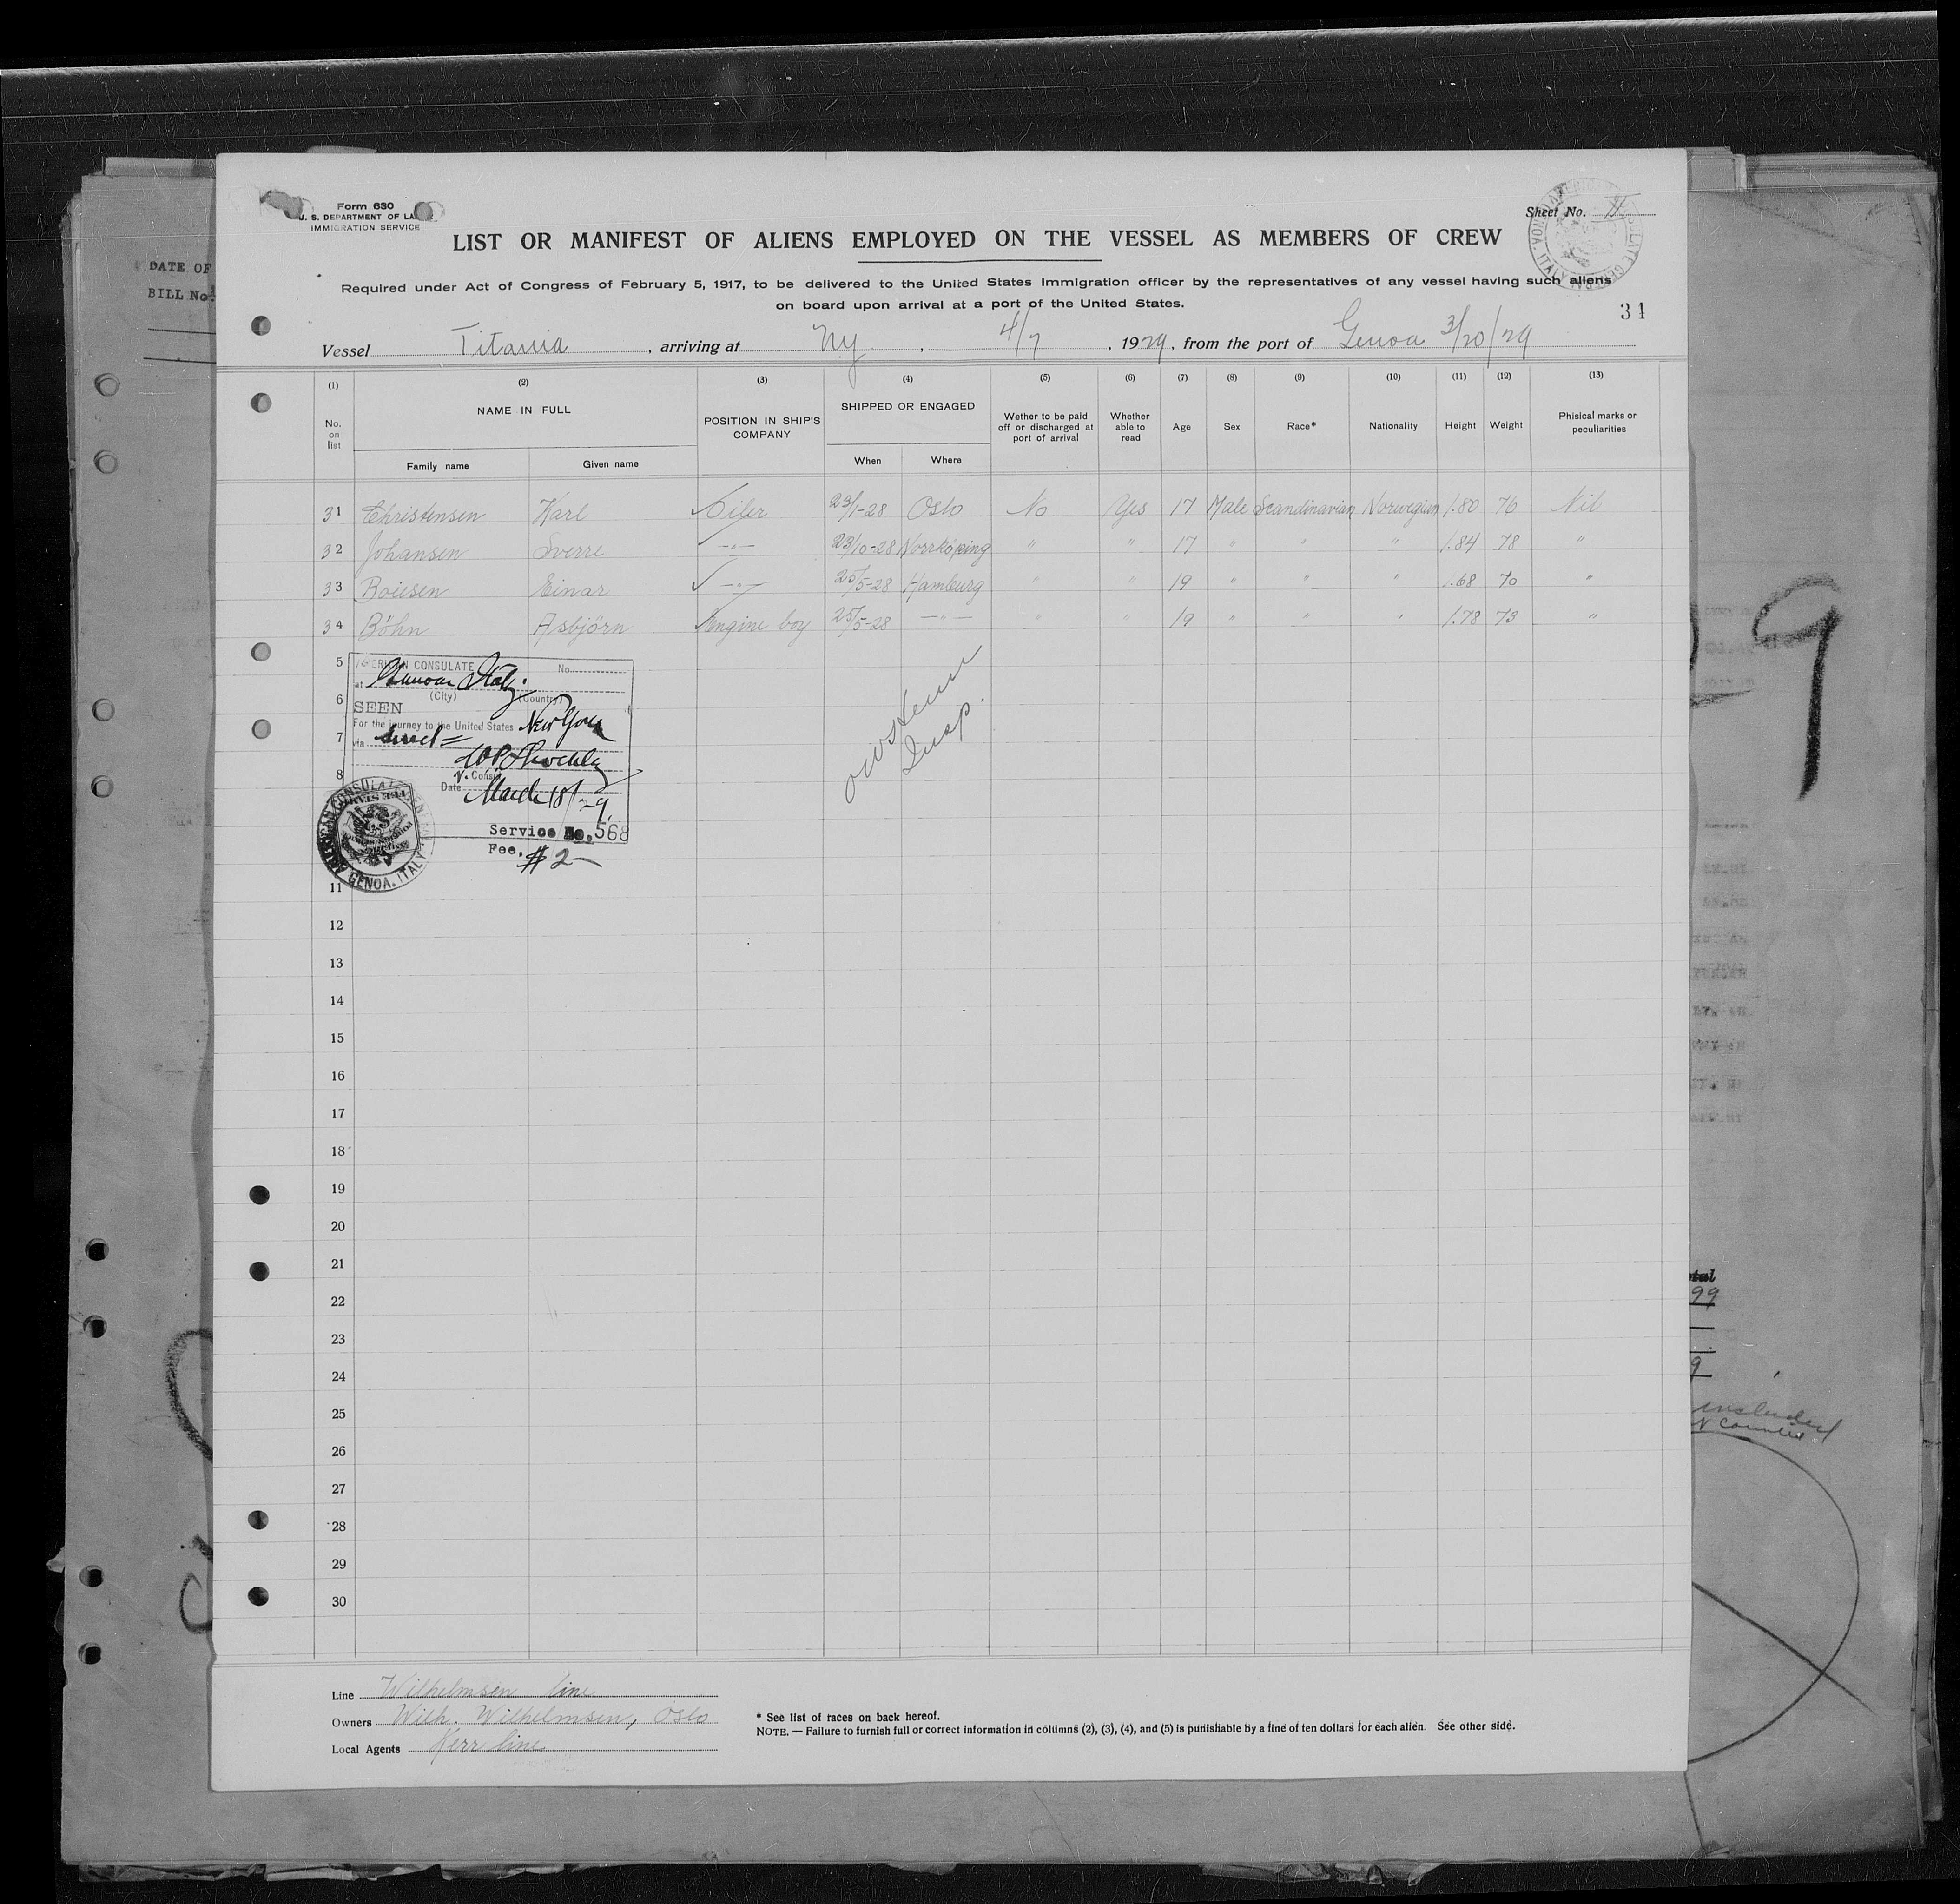 Form 630
U. S. DEPARTMENT OF LA
IMMIGRATION SERVICE
Sheet No. II
LIST OR MANIFEST OF ALIENS EMPLOYED ON THE VESSEL AS MEMBERS OF CREW
Required under Act of Congress of February 5, 1917, to be delivered to the United States Immigration officer by the representatives of any vessel having such aliens
on board upon arrival at a port of the United States.
34
Vessel Titania, arriving at Ny, 4/7, 1929, from the port of Genoa 3/20/29
(1) (2) (3) (4) (5) (6) (7) (8) (9) (10) (11) (12) (13)
No. on list NAME IN FULL Family name Given name POSITION IN SHIP'S COMPANY SHIPPED OR ENGAGED When Where Wether to be paid off or discharged at port of arrival Whether able to read Age Sex Race* Nationality Height Weight Phisical marks or peculiarities
31 Christensen Karl Oiler 23/1-28 Oslo No Yes 17 Male Scandinavian Norwegian 1.80 76 Nil
32 Johansen Sverre -"- 23/10-28 Norrköping " " 17 " " " 1.84 78 "
33 Boiesen Einar -"- 25/5-28 Hamburg " " 19 " " " 1.68 70 "
34 Böhn Asbjörn Engine boy 25/5-28 -"- " " 19 " " " 1.78 73 "
5
6
7
8
AMERICAN CONSULATE No.
at Genoa Italy.
(City) (Country)
SEEN
For the journey to the United States New York
via direct
V. Consul
Date March 18/29.
Service No. 568
Fee, $2-
AMERICAN CONSULATE GENERAL GENOA, ITALY
Insp.
11
12
13
14
15
16
17
18
19
20
21
22
23
24
25
26
27
28
29
30
Line Wilhelmsen line
Owners Wilh. Wilhelmsen, Oslo
Local Agents Kerr line
* See list of races on back hereof.
NOTE. — Failure to furnish full or correct information in columns (2), (3), (4), and (5) is punishable by a fine of ten dollars for each alien. See other side.
DATE OF
BILL No.
9
99
9
included